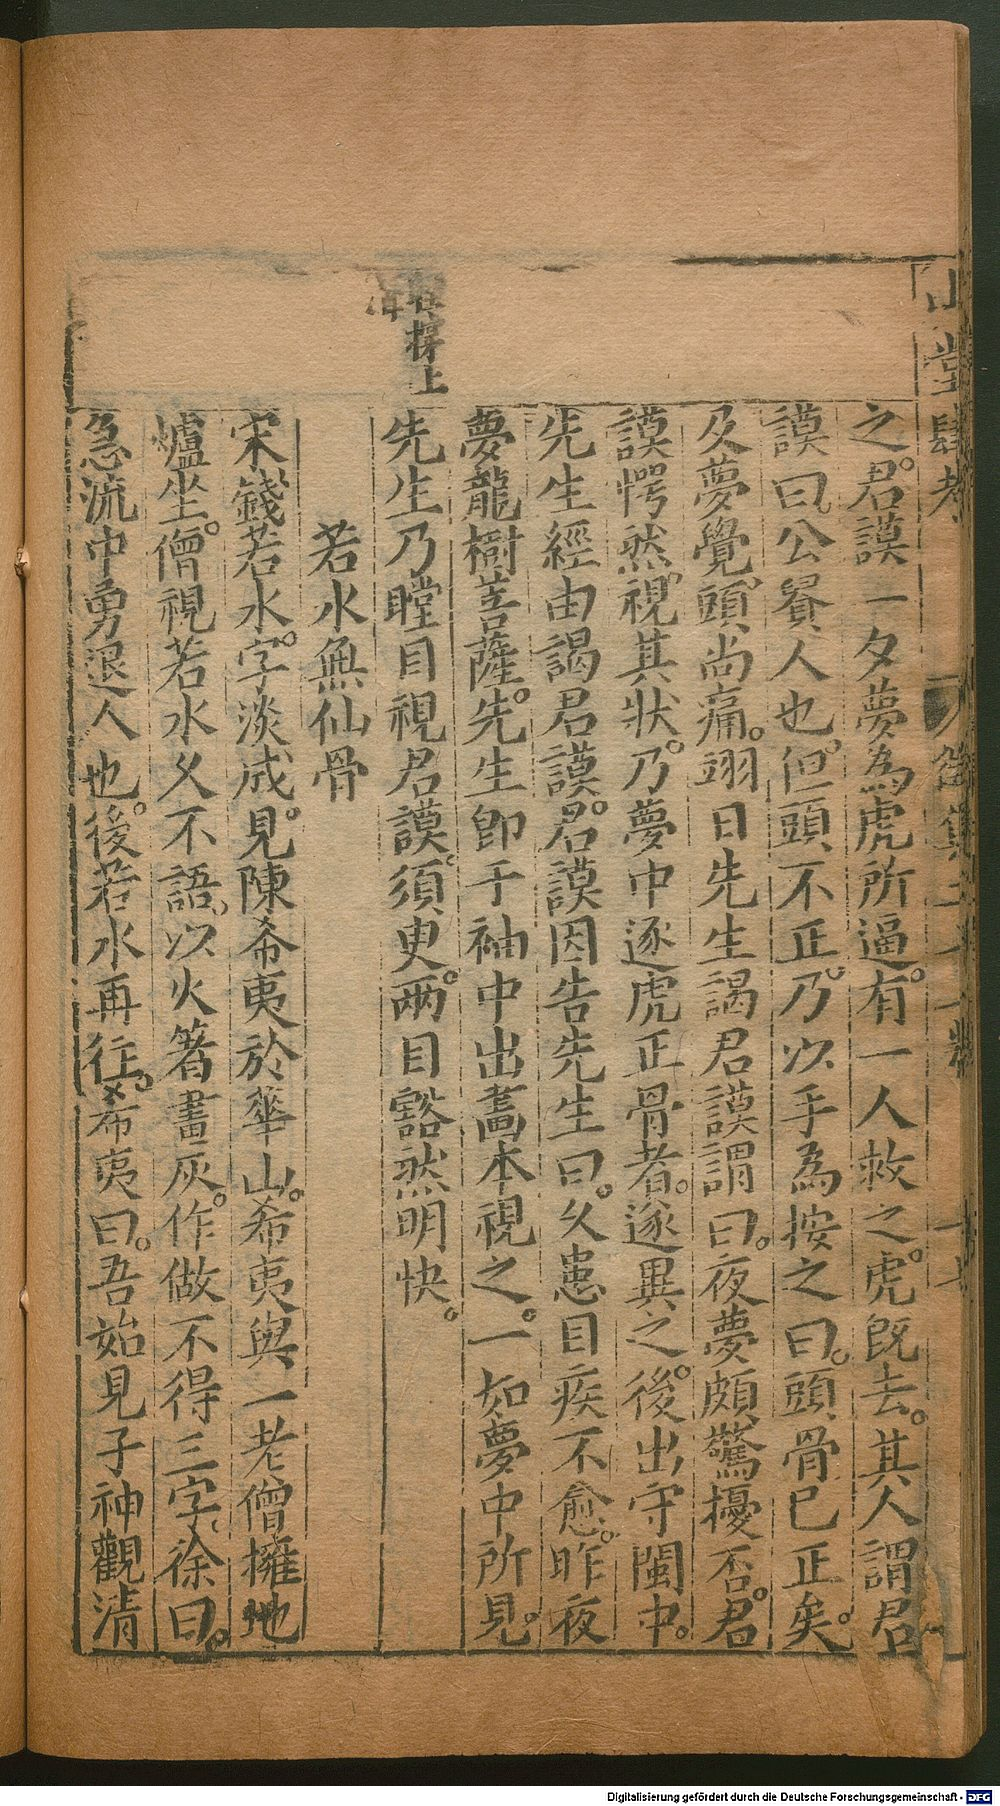 山堂肆考
之君謨一夕夢為虎所逼有一人救之虎旣去其人謂君
謨曰公貴人也但頭不正乃以手為按之曰頭骨已正矣
及夢覺頭尚痛翊日先生謁君謨謂曰夜夢頗驚擾否君
謨愕然視其狀乃夢中逐虎正骨者遂異之後出守閩中
先生經由謁君謨君謨因告先生曰久患目疾不愈昨夜
夢龍樹菩薩先生卽于袖中出畵本視之一如夢中所見
先生乃瞠目視君謨須臾兩目豁然明快
若水無仙骨
宋錢若水字淡成見陳希夷於華山希夷與一老僧擁地
爐坐僧視若水久不語以火箸畫灰作做不得三字徐曰
急流中勇退人也後若水再往希夷曰吾始見子神觀清
Digitalisierung gefördert durch die Deutsche Forschungsgemeinschaft - DFG